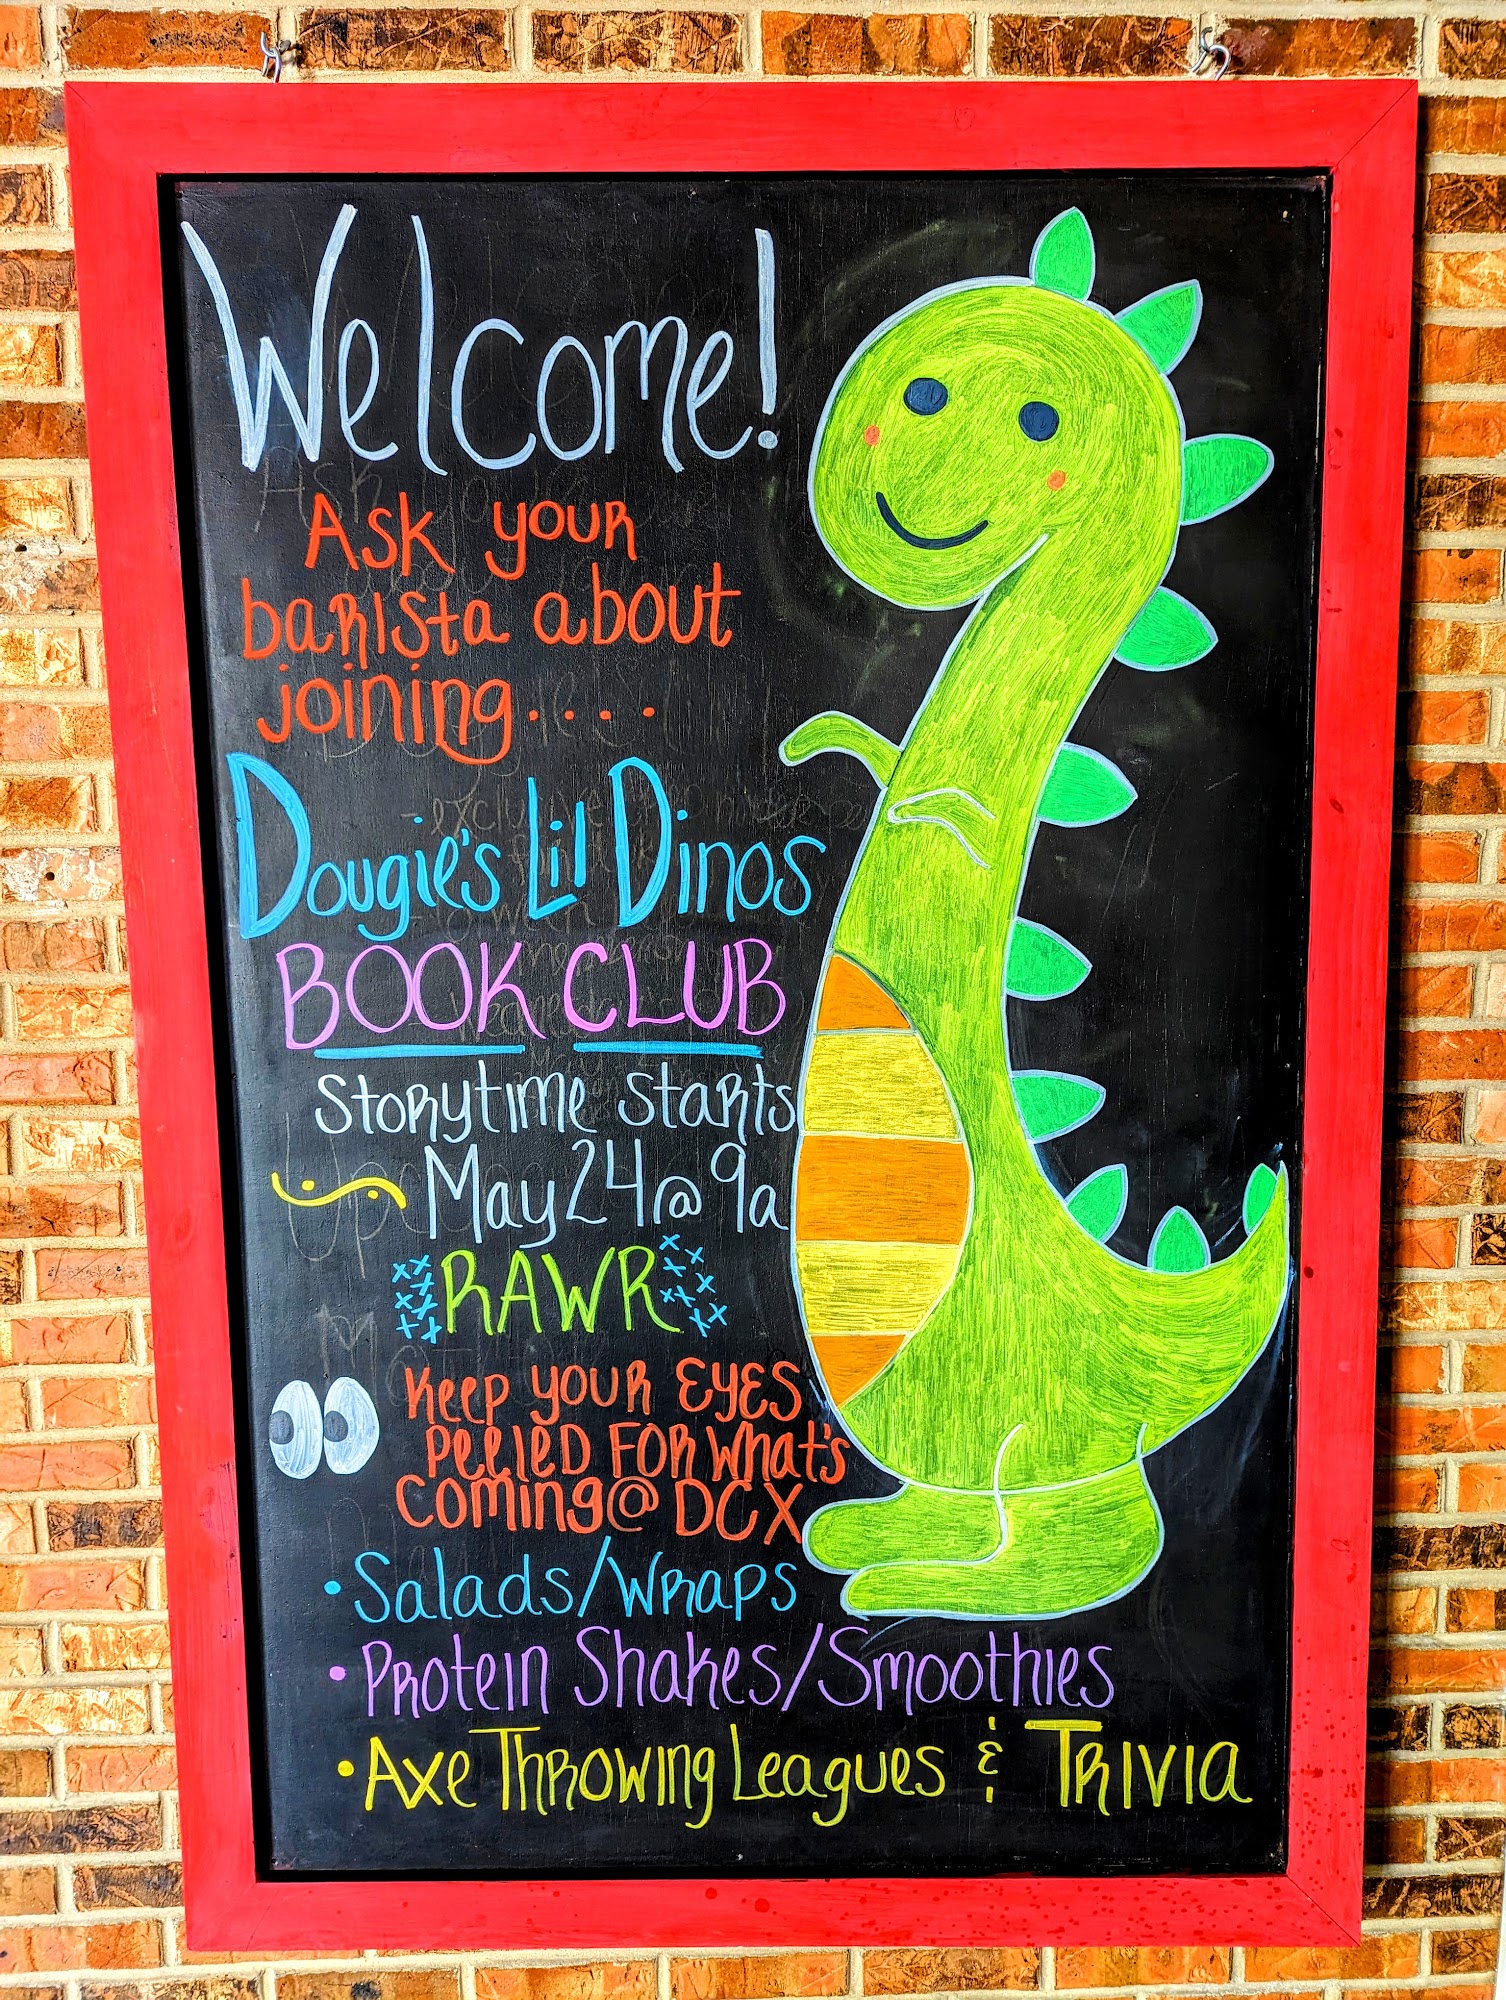 Welcome!
Ask your
barista about
joining....
Dougie's Lil Dinos
BOOK CLUB
Storytime starts
May 24 @ 9a
RAWR
Keep your EYES
peeled for what's
coming @ DCX
• Salads/Wraps
• Protein Shakes/Smoothies
• Axe Throwing Leagues & Trivia